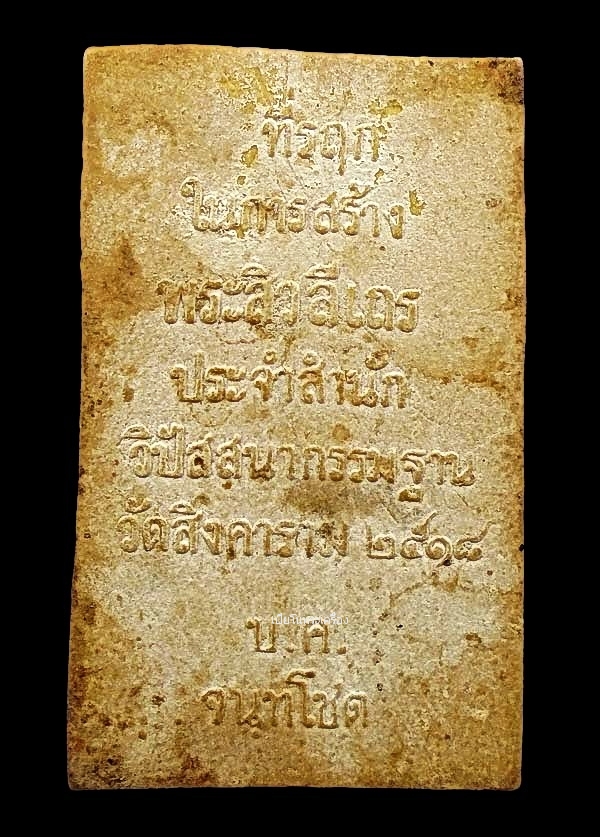 ที่รฤก
ในการสร้าง
พระสิวลีเถร
ประจำสำนัก
วิปัสสนากรรมฐาน
วัดสิงคาราม ๒๕๑๘
บ.ค.
จนฺทโชต